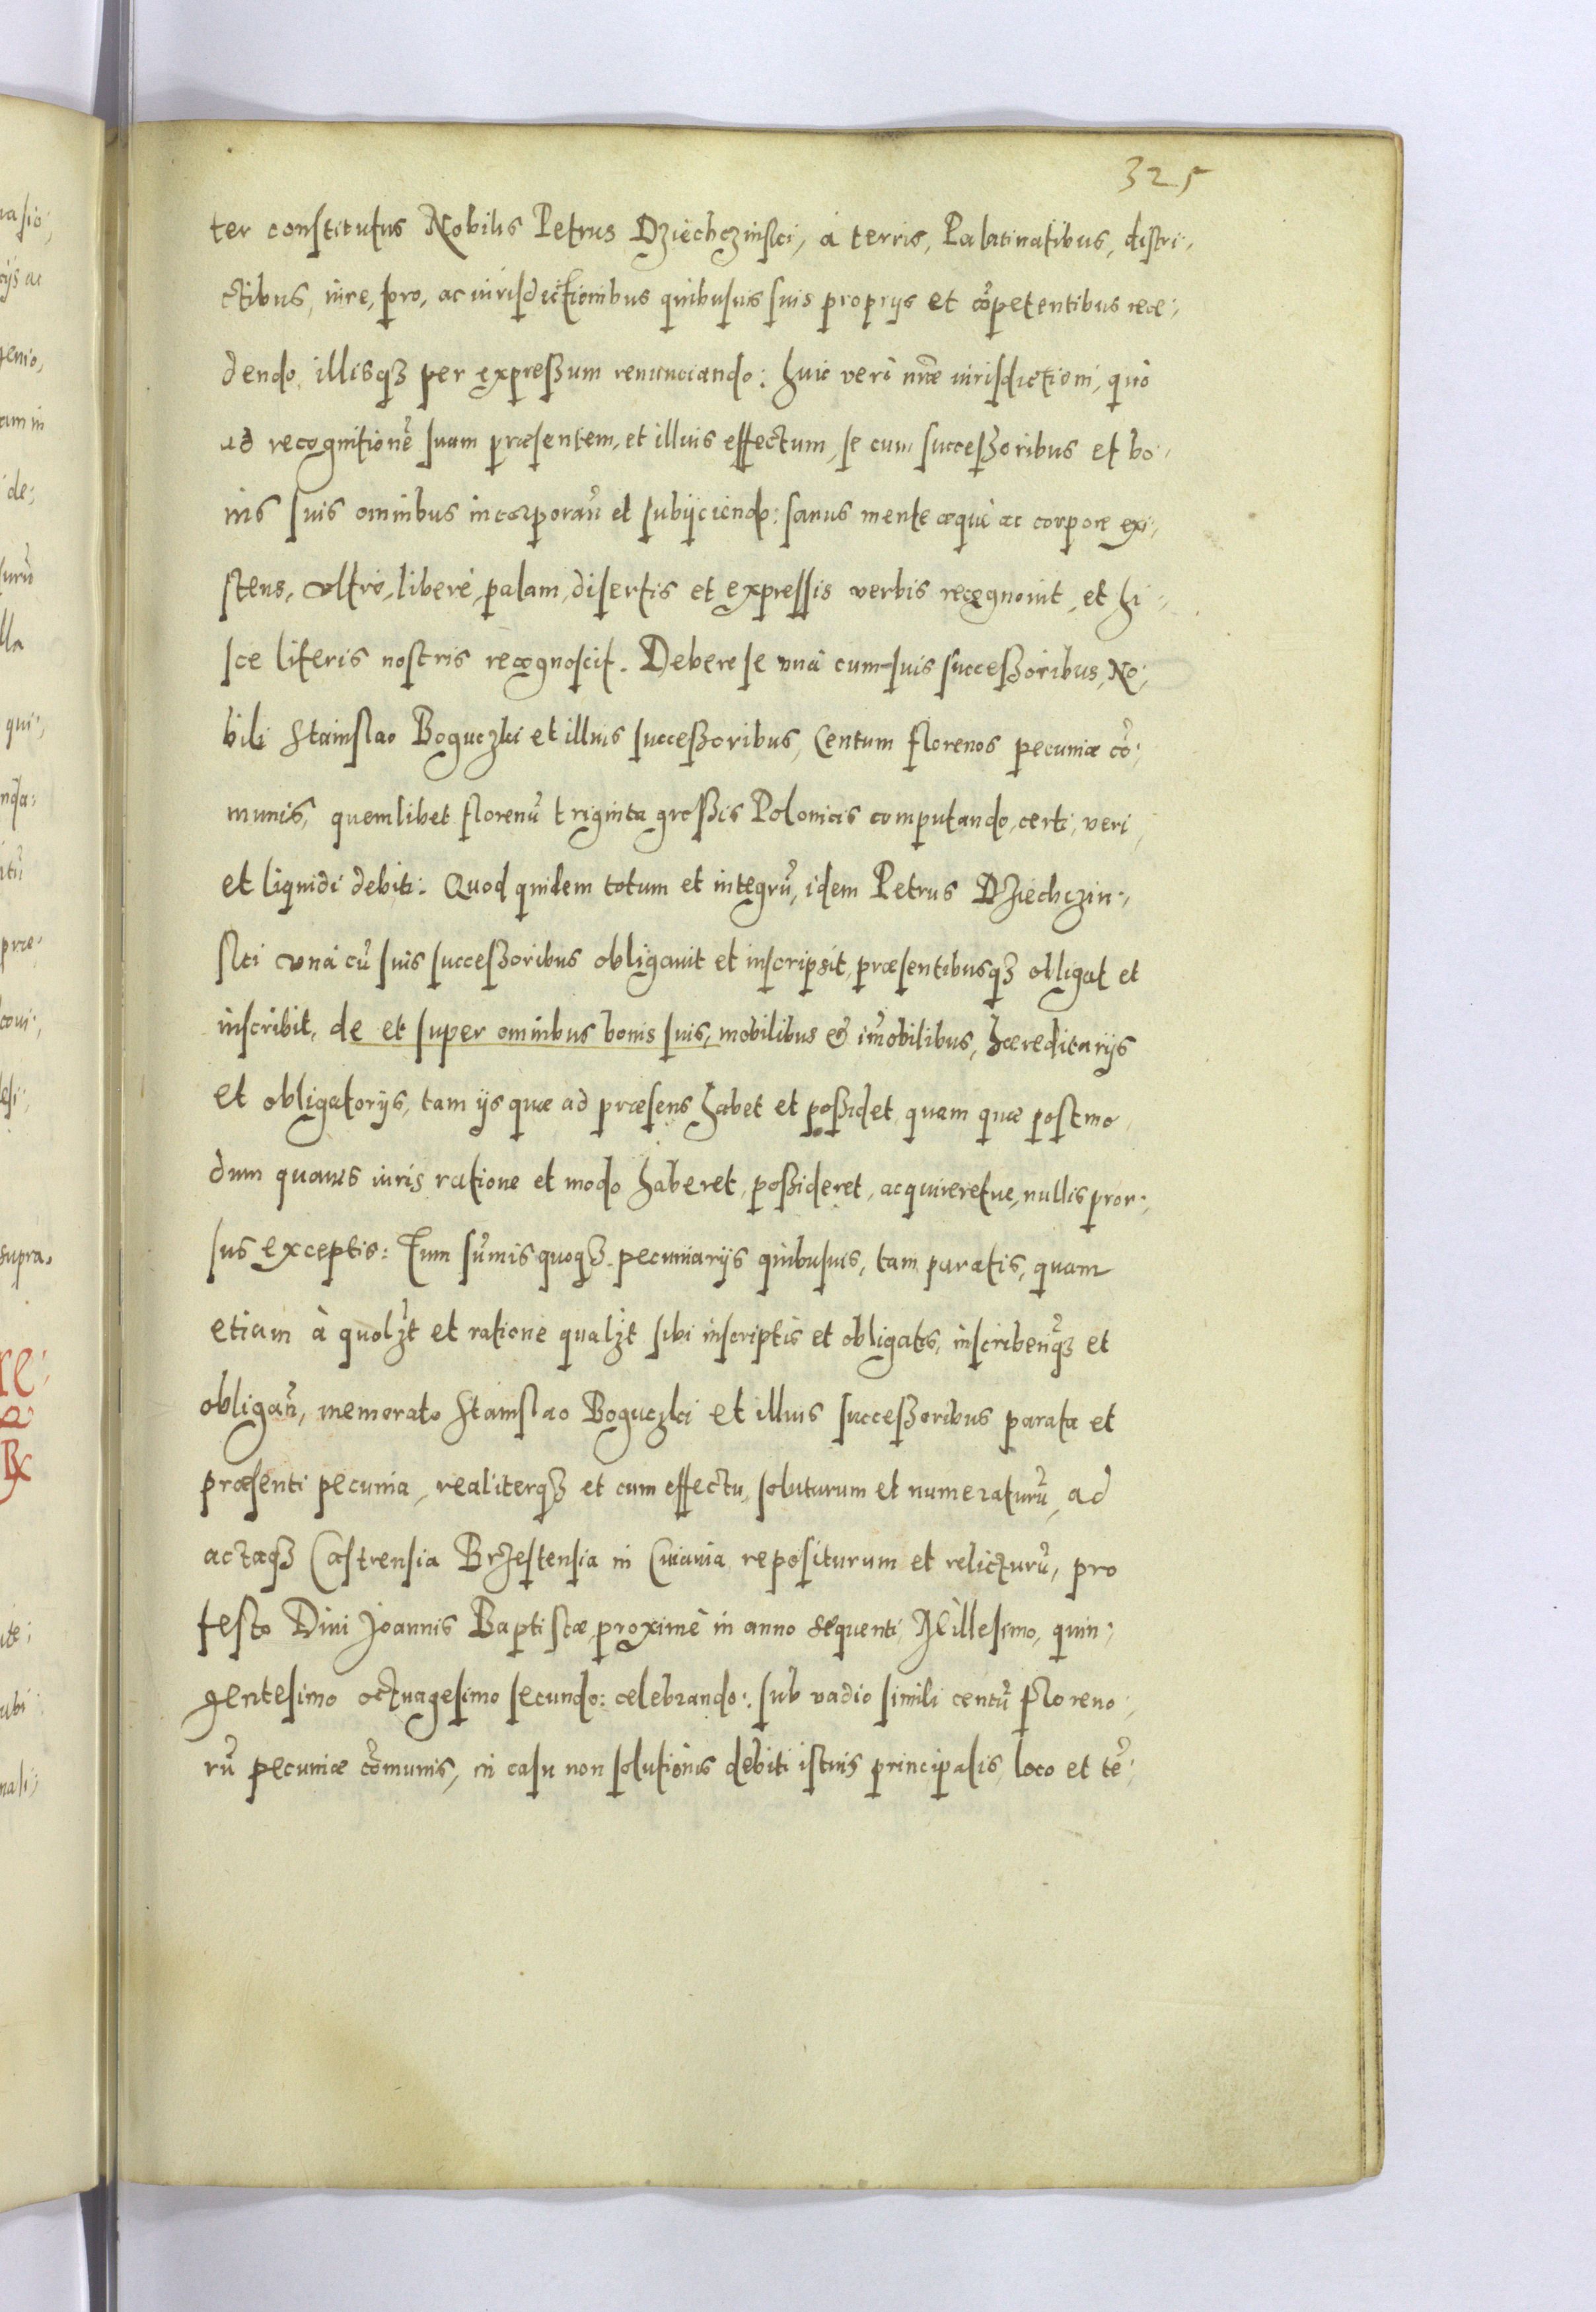 325
ter constitutus Nobilis Petrus Dziechczinsci, à terris, Palatinatibus, distri,,
ctibus, iure, foro, ac iurisdictionibus quibusuis suis proprijs et cōpetentibus rece,,
dendo, illisqȝ per expreßum renunciando: huic verò nr̄ae iurisdictioni, quò
ad recognitionē suam præsentem, et illius effectum, se cum succeßoribus et bo,,
nis suis omnibus incorporan̄ et subijciendo: sanus mente æquè ac corpore exi,,
stens, vltrò, liberè, palam, disertis et expressis verbis recognouit, et hi,,
sce literis nostris recognoscit. Debere se vnà cum suis succeßoribus, No,,
bili Stanislao Boguczki et illius succeßoribus, Centum florenos pecuniæ cō,,
munis, quemlibet florenū triginta großis Polonicis computando, certi, veri
et liquidi debiti: Quod quidem totum et integrū, idem Petrus Dziechczin,,
sci vnà cū suis succeßoribus obligauit et inscripsit, præsentibusqȝ obligat et
inscribit, de et super omnibus bonis suis, mobilibus & im̄obilibus, hæreditarijs
et obligatorijs, tam ijs quæ ad præsens habet et poßidet, quam quæ postmo
dum quouis iuris ratione et modo haberet, poßideret, acquireretue, nullis pror,,
sus exceptis: Tum sum̄is quoqȝ pecuniarijs quibusuis, tam paratis, quam
etiam à quolȝt et ratione qualȝt sibi inscriptis et obligatis, inscriben̄qȝ et
obligan̄, memorato Stanislao Boguczki et illius succeßoribus parata et
præsenti pecunia, realiterqȝ et cum effectu soluturum et numeraturū, ad
actaqȝ Castrensia Brzestensia in Cuiauia repositurum et relicturū, pro
festo Diui Joannis Baptistæ, proximè in anno sequenti, Millesimo, quin,,
gentesimo octuagesimo secundo: celebrando: sub vadio simili centū floreno,,
rū pecuniæ com̄unis, in casu non solutionis debiti istius principalis, loco et tē,,